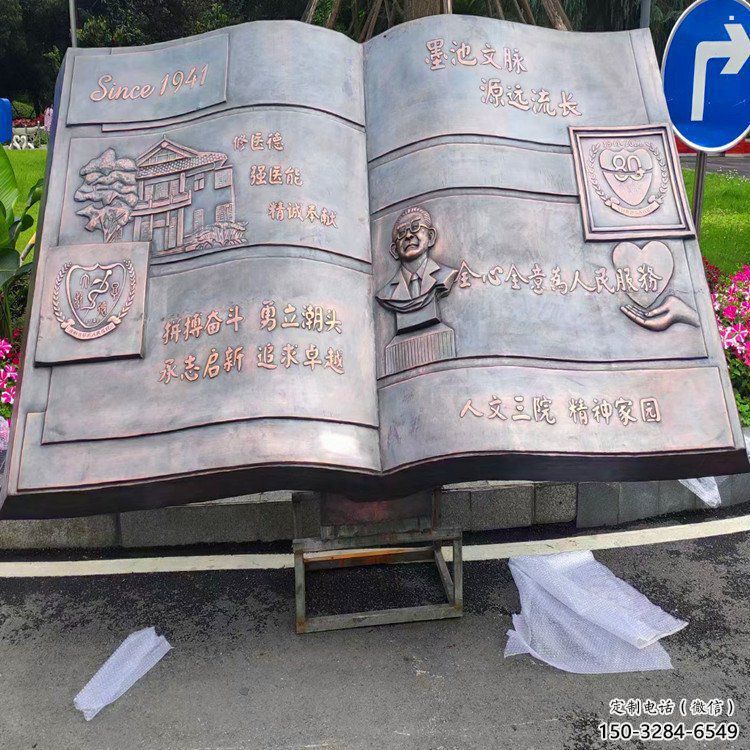 Since 1941
修医德
强医能
精诚奉献
拼搏奋斗 勇立潮头
承志启新 追求卓越
墨池文脉
源远流长
80
全心全意为人民服務
人文三院 精神家园
定制电话（微信）
150-3284-6549